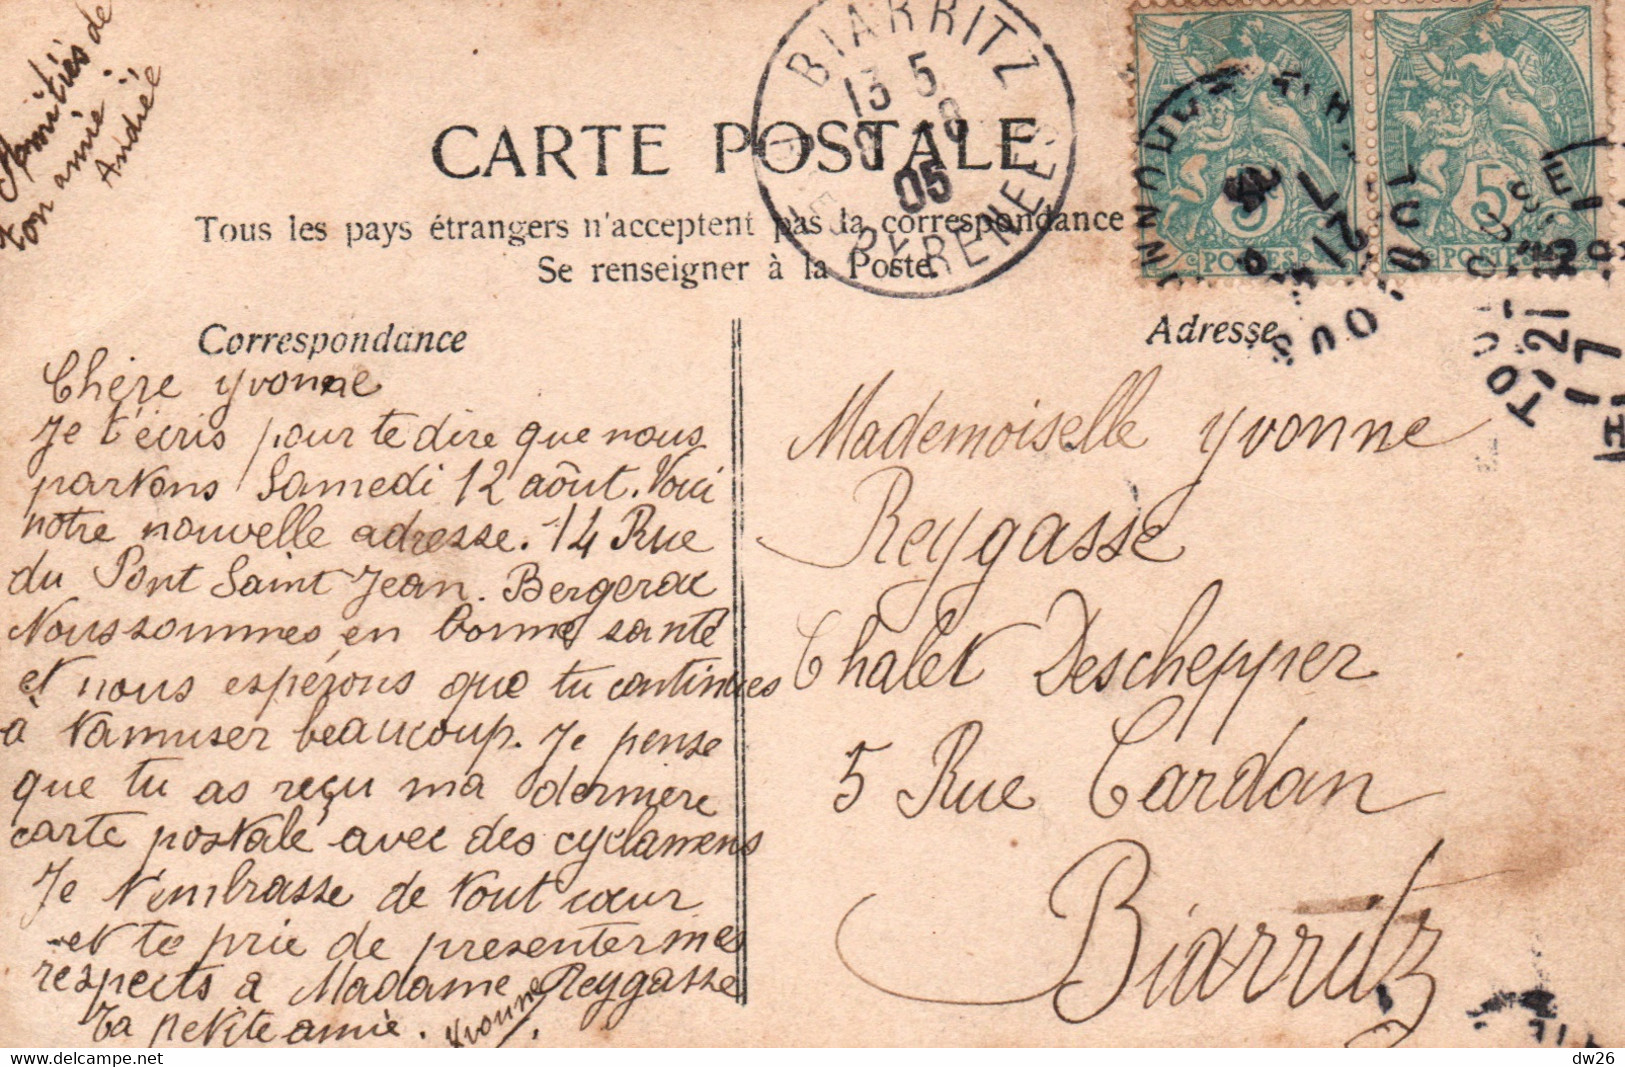 Amitiés de
ton amie
Andrée
BIARRITZ
13 5
8
05
PYRENEES
CARTE POSTALE
Tous les pays étrangers n'acceptent pas la correspondance
Se renseigner à la Poste.
5
POSTES
5
POSTES
Correspondance
Chère Yvonne
Je t'écris pour te dire que nous
partons Samedi 12 août. Voici
notre nouvelle adresse. 14 Rue
du Pont Saint Jean. Bergerac
Nous sommes en bonne santé
et nous espérons que tu continues
à t'amuser beaucoup. Je pense
que tu as reçu ma dernière
carte postale avec des cyclamens
Je t'embrasse de tout cœur
et te prie de présenter mes
respects a Madame Reygasse
Ta petite amie. Yvonne.
Adresse
Mademoiselle Yvonne
Reygasse
Chalet Deschepper
5 Rue Cardan
Biarritz
dw26